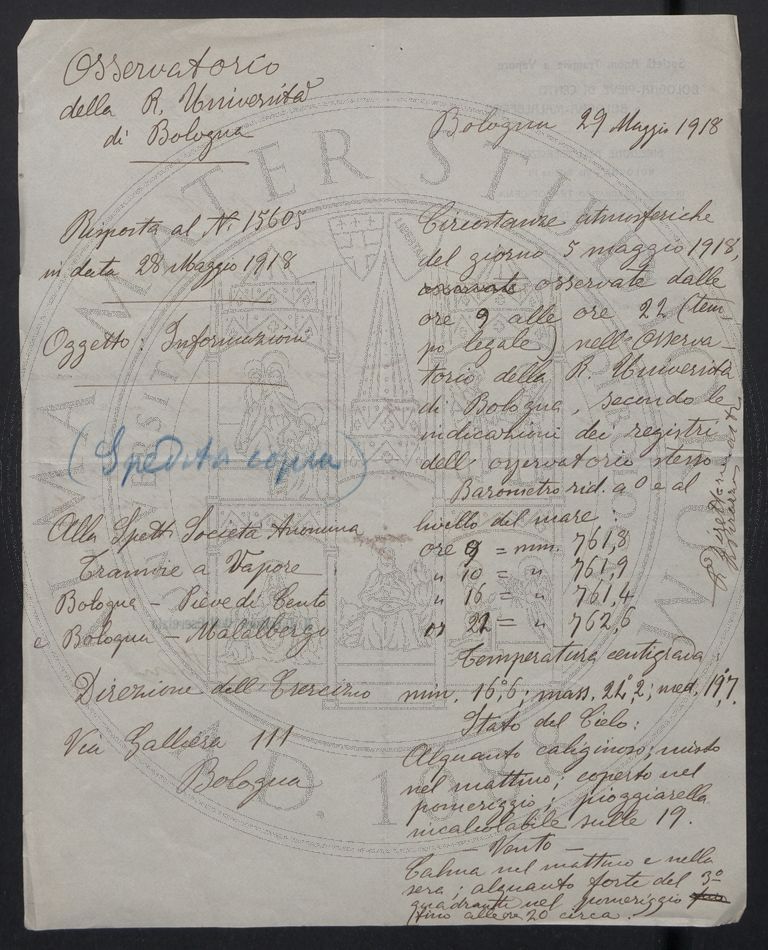 Osservatorio
della R. Università
di Bologna
Bologna 29 Maggio 1918
Risposta al N. 15605
in data 28 Maggio 1918
Oggetto: Informazioni
(Spedita copia)
Alla Spett. Società Anonima
Tramvie a Vapore
Bologna - Pieve di Cento
e Bologna - Malalbergo
Direzione dell'Esercizio
Via Galliera 111
Bologna
Circostanze atmosferiche
del giorno 5 maggio 1918,
osservate osservate dalle
ore 9 alle ore 22 (tem-
po legale) nell'Osserva-
torio della R. Università
di Bologna, secondo le
indicazioni dei registri
dell'osservatorio stesso
Barometro rid. a 0° e al
livello del mare:
ore 9 = mm. 761,8
" 10 = " 761,9
" 16 = " 761,4
" 22 = " 762,6
Temperatura centigrada:
min. 16°,6; mass. 22°,2; med. 19°,7.
Stato del Cielo:
Alquanto caliginoso; misto
nel mattino; coperto nel
pomeriggio; pioggiarella
incalcolabile sulle 19.
- Vento -
Calma nel mattino e nella
sera; alquanto forte del 3°
quadrante nel pomeriggio
fino alle ore 20 circa.
Il Direttore
ALMA MATER STUDIORUM
A.D. 1088